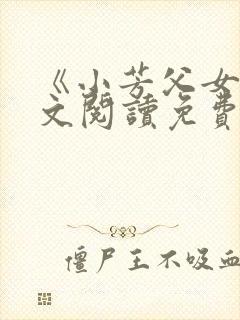 《小芳父女
文閱讀免費
僵尸王不吸血